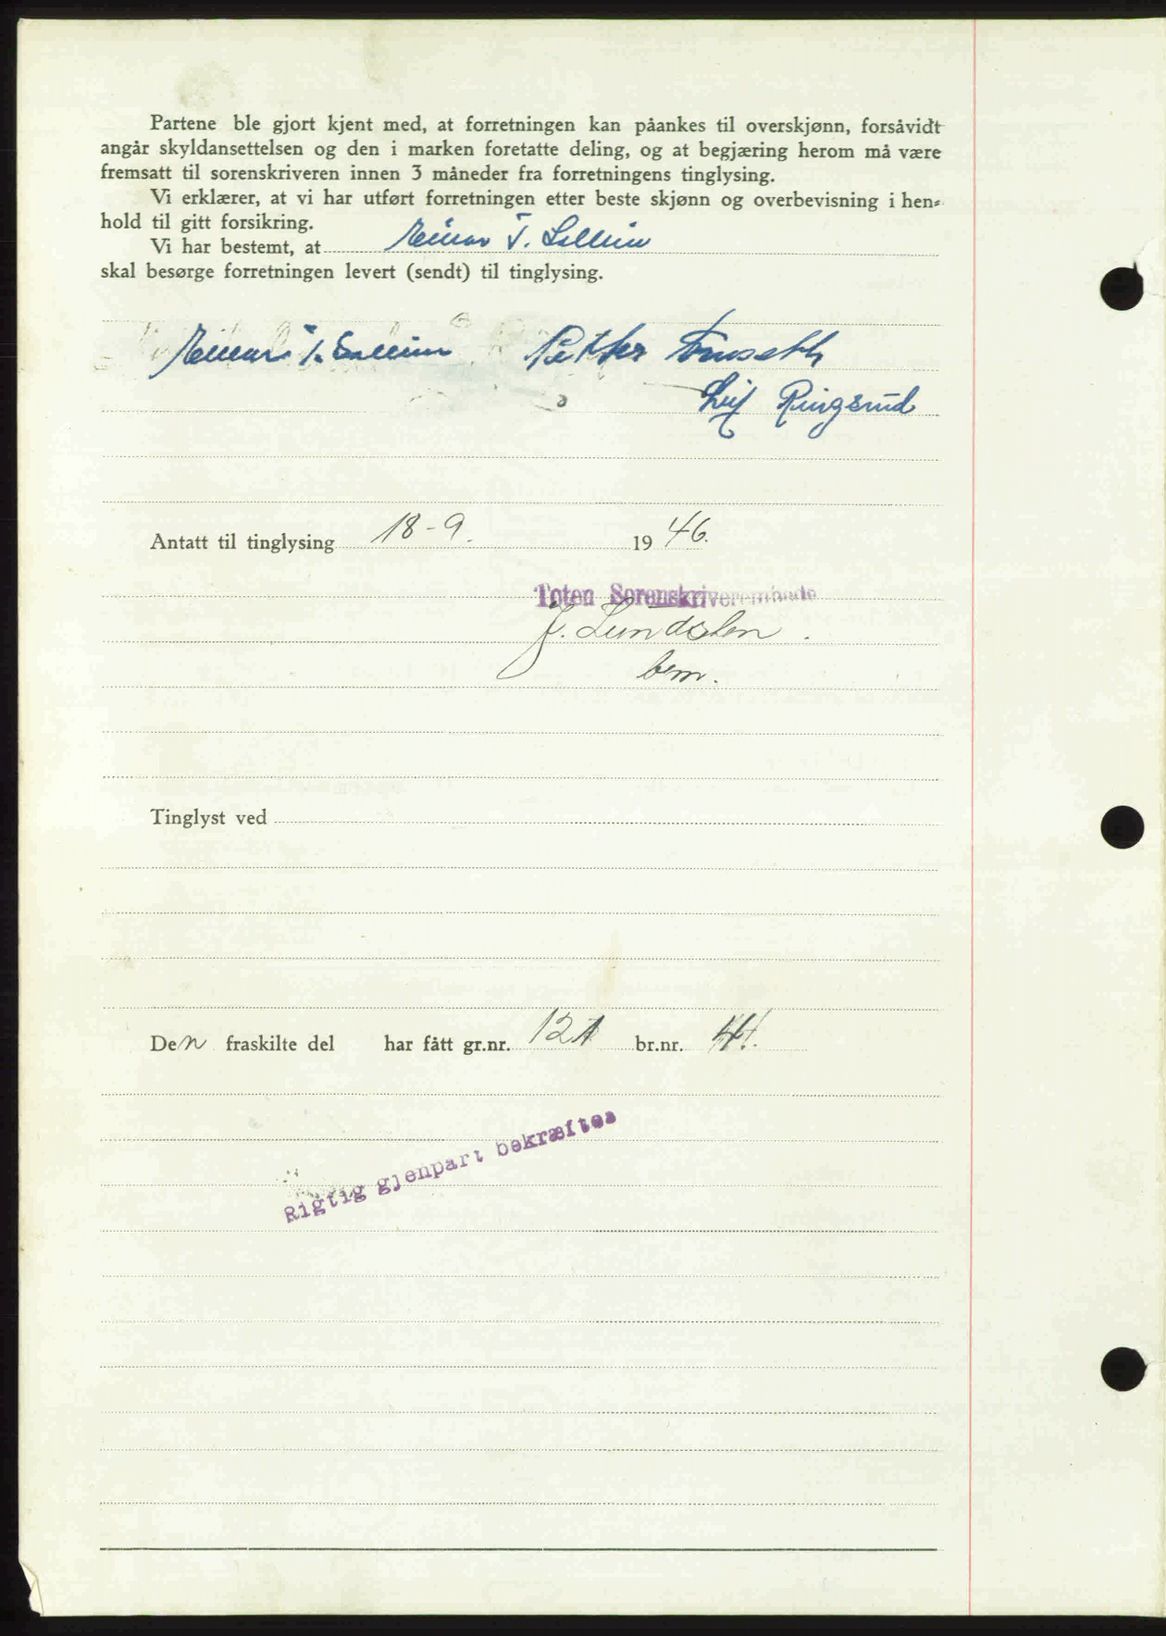 Partene ble gjort kjent med, at forretningen kan påankes til overskjønn, forsåvidt
angår skyldansettelsen og den i marken foretatte deling, og at begjæring herom må være
fremsatt til sorenskriveren innen 3 måneder fra forretningens tinglysing.
Vi erklærer, at vi har utført forretningen etter beste skjønn og overbevisning i hen-
hold til gitt forsikring.
Vi har bestemt, at Einar T.
skal besørge forretningen levert (sendt) til tinglysing.
Einar T. Petter
Leif Ringsrud
Antatt til tinglysing 18-9. 1946.
Toten Sorenskriverembede
J.
bem.
Tinglyst ved
Den fraskilte del har fått gr.nr. 121 br.nr. 44.
Rigtig gjenpart bekræftes